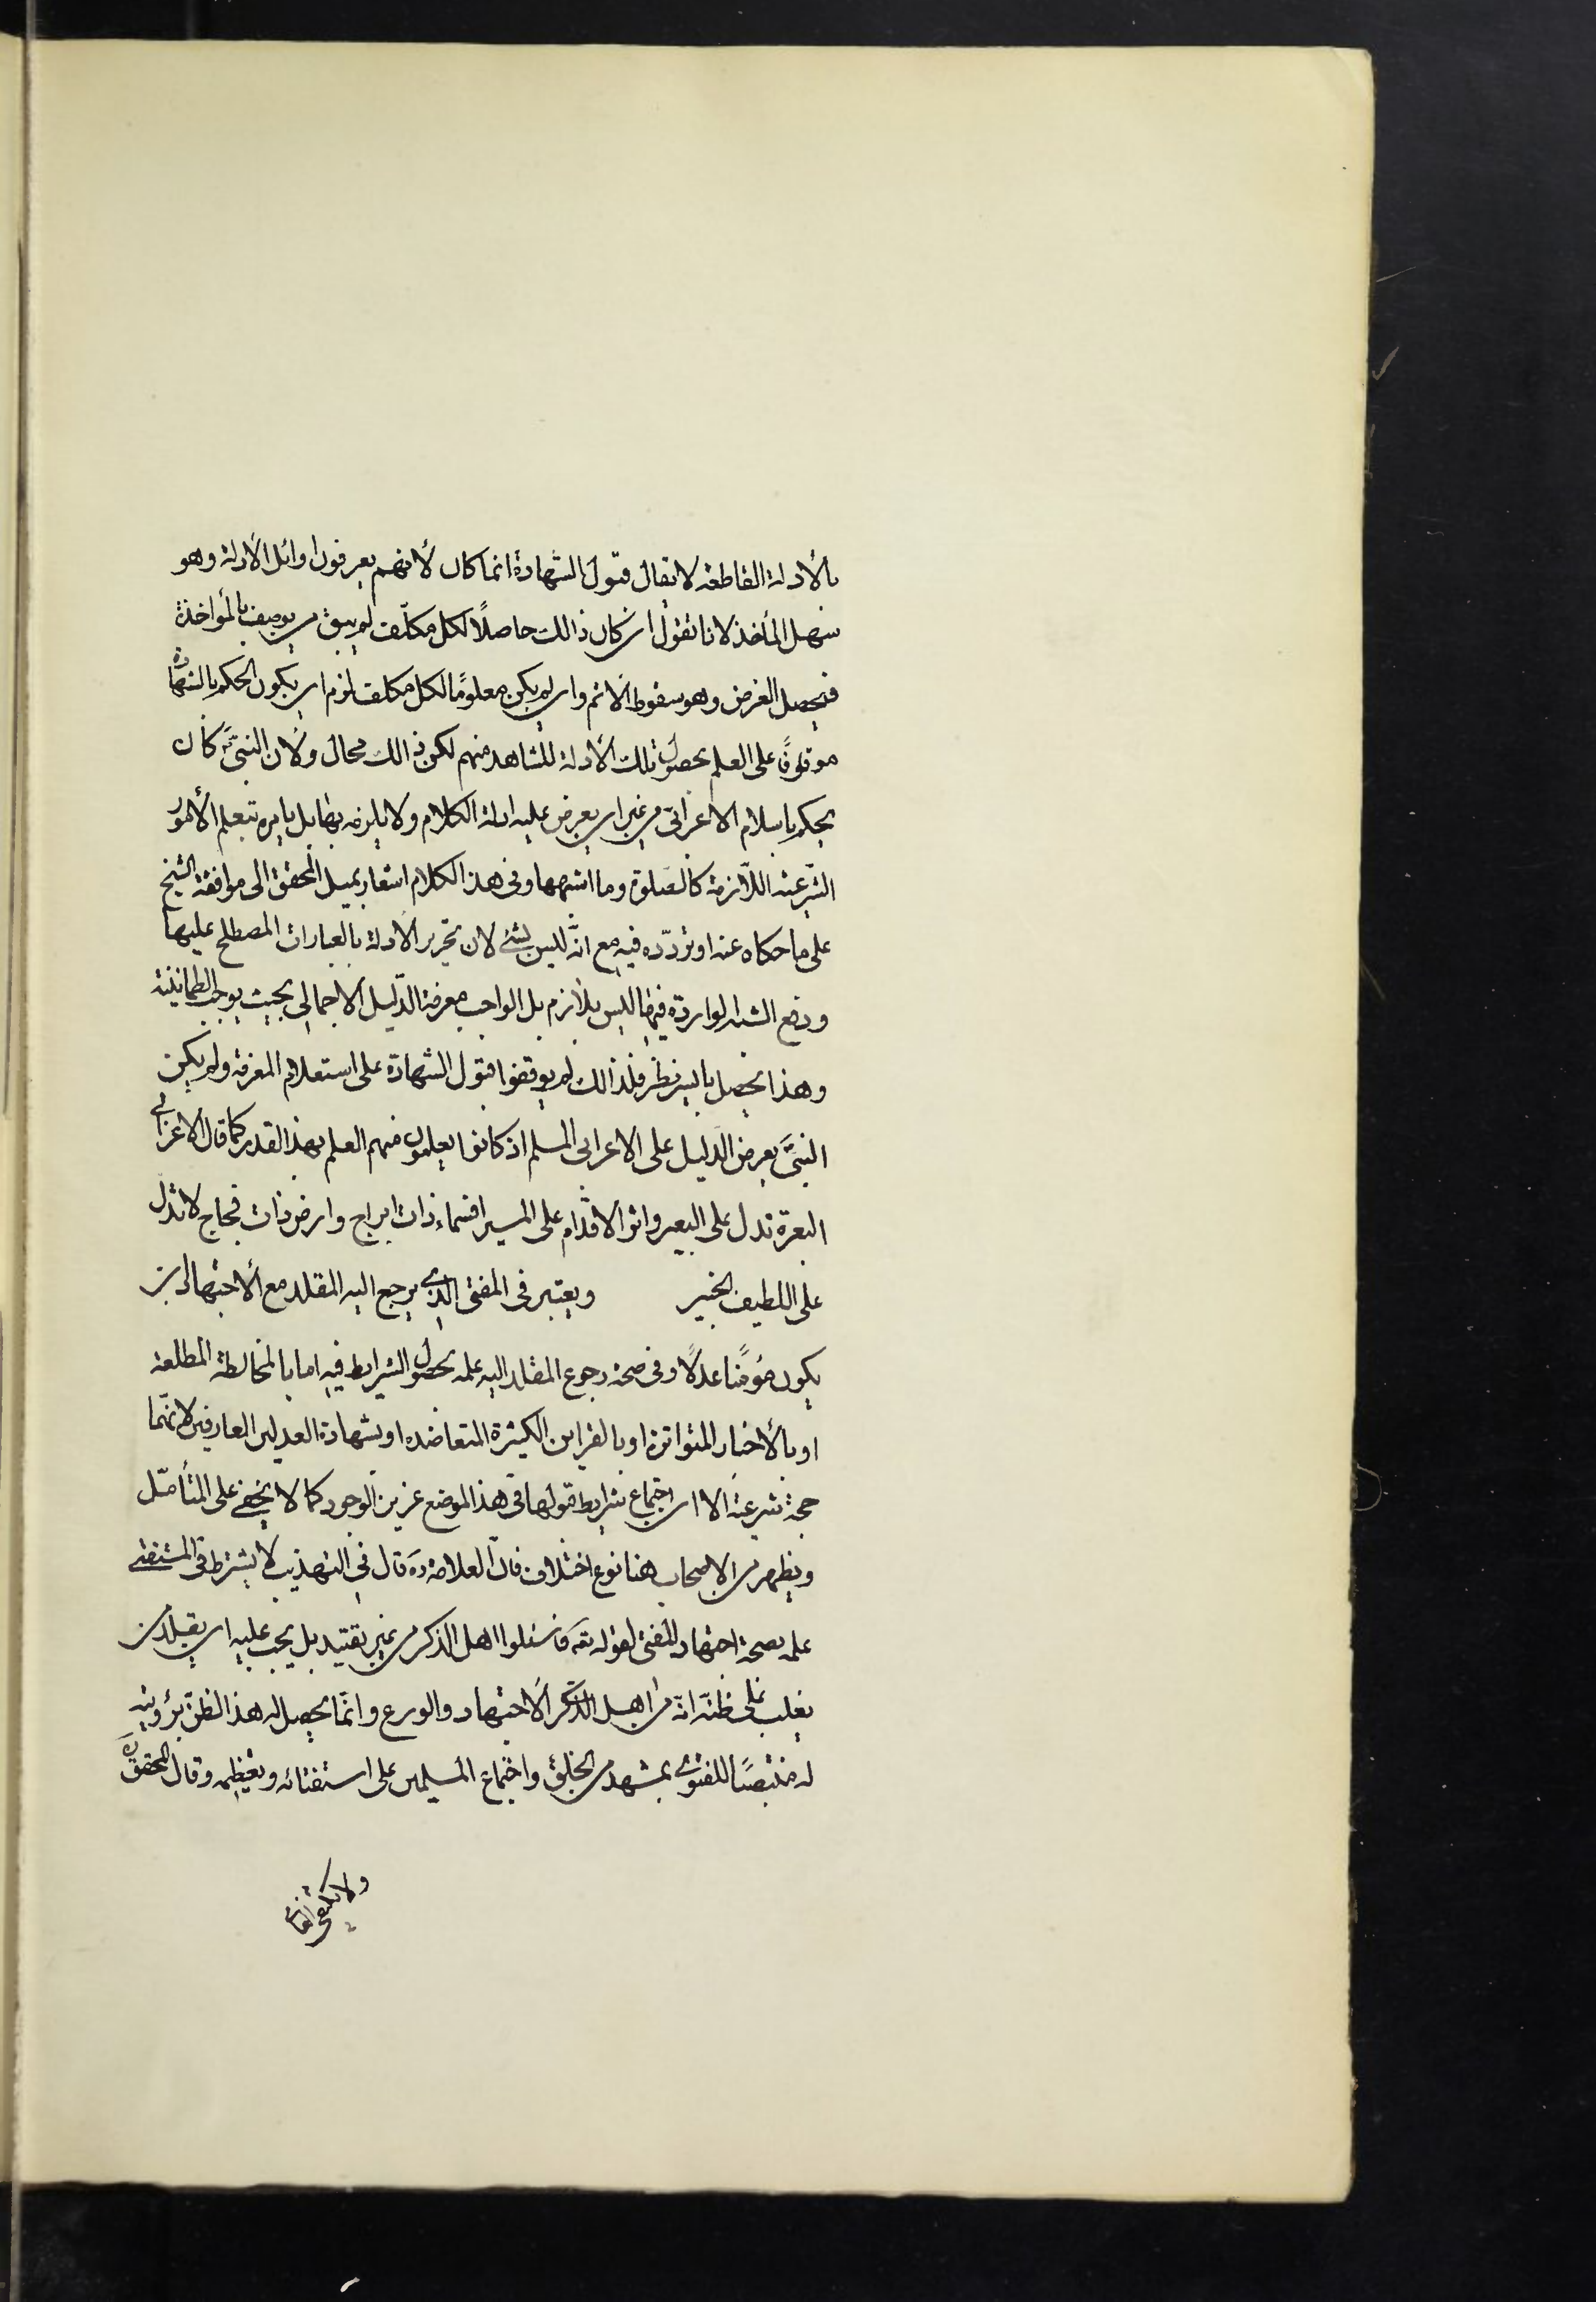 بالأدلة القاطعة لا يقال قبول الشهادة انما كان لأنهم يعرفون اوائل الأدلة وهو
سهل المأخذ لانا نقول ان كان ذالك حاصلًا لكل مكلّف لم يبق من يوصف بالمؤاخذة
فيحصل الغرض وهو سقوط الاثم وان لم يكن معلومًا لكل مكلف لزم ان يكون الحكم بالشهادة
موقوفًا على العلم بحصول تلك الأدلة للشاهد منهم لكن ذالك محال ولان النبيّ كان
يحكم باسلام الاعرابّي من غير ان يعرض عليه ادلة الكلام ولا يلزمه بها بل يامره بتعلم الأمور
الشّرعيّة اللّازمة كالصّلوة وما اشبهها وفى هذا الكلام اشعار بميل المحقق الى موافقة الشيخ
على ما حكاه عنه او تردّده فيه مع انّه ليس بشئ لان تحرير الأدلة بالعبارات المصطلح عليها
ودفع الشبه الواردة فيها ليس بلازم بل الواجب معرفة الدّليل الاجمالى بحيث يوجب الطمانينة
وهذا يحصل بايسر نظر فلذالك لم يوقفوا قبول الشهادة على استعلام المعرفة ولم يكن
النبيّ يعرض الدّليل على الاعرابى المسلم اذ كانوا يعلمون منهم العلم بهذا القدر كما قال الاعرابى
البعرة تدل على البعير واثر الاقدام على المسير افسماء ذات ابراج وارض ذات فجاج لا تدل
على اللطيف الخبير ويعتبر فى المفتى الذى يرجع اليه المقلد مع الأجتهاد ان
يكون مؤمنًا عدلًا وفى صحة رجوع المقلد اليه علمه بحصول الشرايط فيه اما بالمخالطة المطلعة
او بالأخبار المتواترة او بالقراين الكثيرة المتعاضدة او بشهادة العدلين العارفين لانّها
حجة شرعيّة الا ان اجتماع شرايط قبولها فى هذا الموضع عزيز الوجود كما لا يخفى على المتأمّل
ويظهر من الاصحاب هنا نوع اختلاف فان العلامة ره قال فى التهذيب لا يشترط فى المستفتى
علمه بصحة اجتهاد المفتى لقوله تعه فاسئلوا اهل الذكر من غير تقييد بل يجب عليه ان يقلد من
يغلب على ظنّه انّه من اهل الذّكر الاجتهاد والورع وانّما يحصل له هذا الظنّ برؤيته
له منتصبًا للفتوى بمشهد من الخلق واجتماع المسلمين على استفتائه وتعظيمه وقال المحقق ره
ولا يكتفى العامى